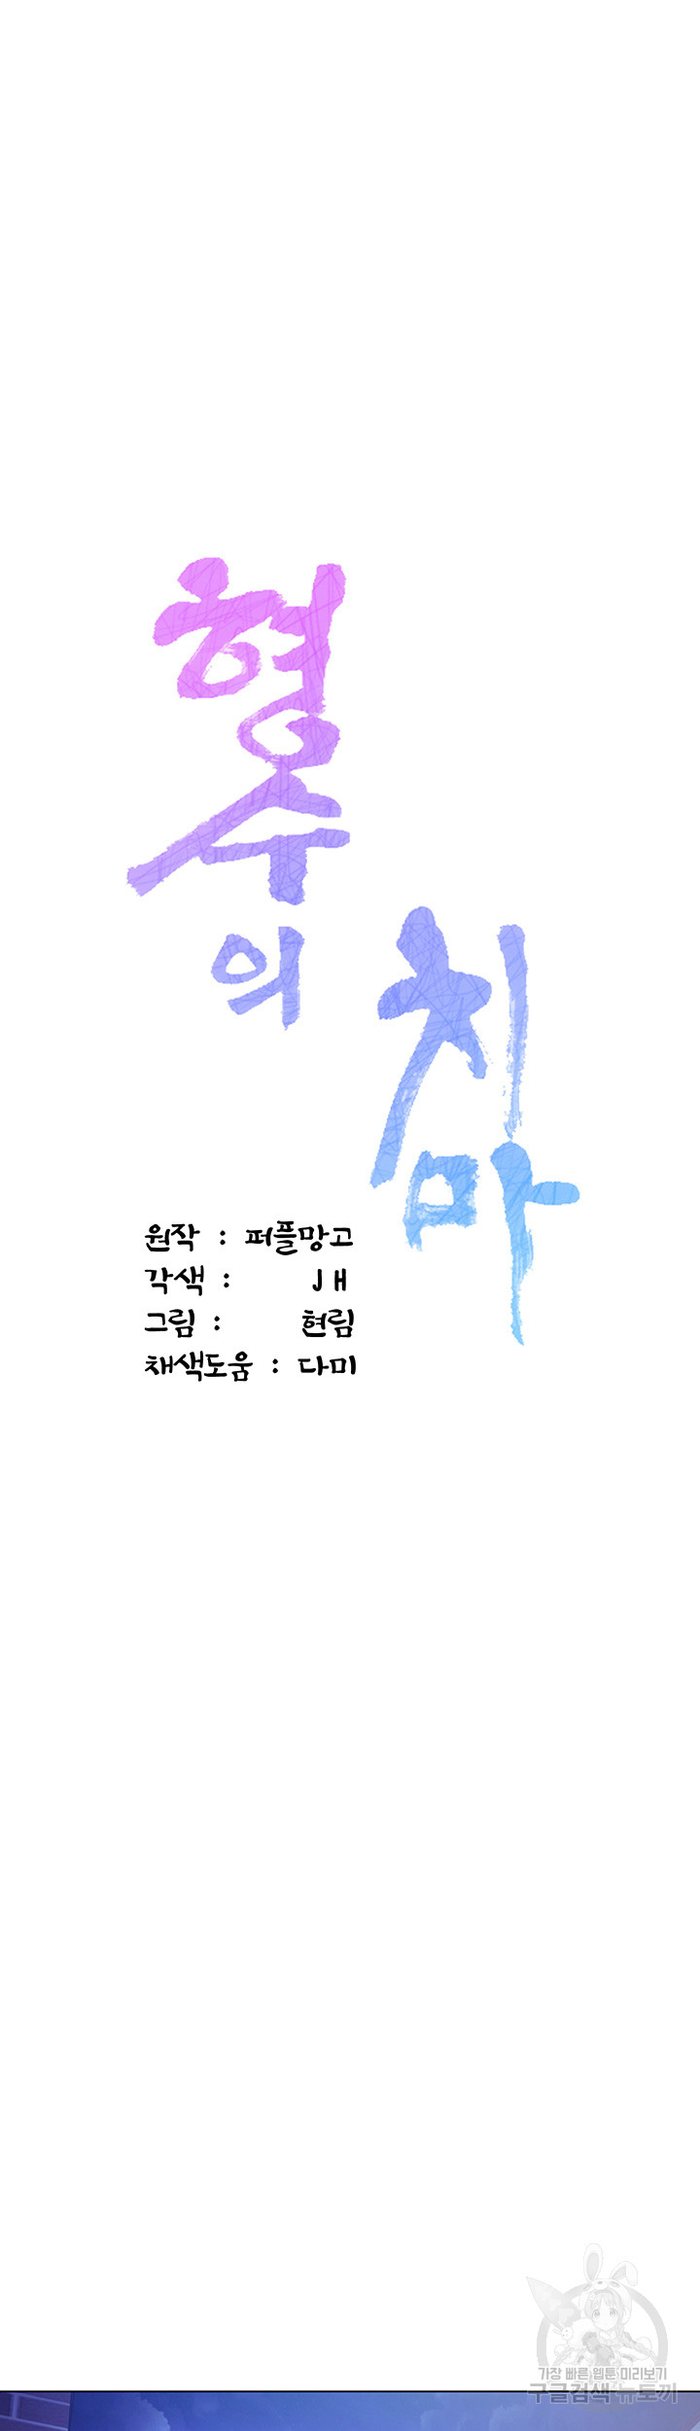 형수의
치마
원작 : 퍼플망고
각색 : JH
그림 : 현림
채색도움 : 다미
가장 빠른 웹툰 미리보기
구글검색 뉴토끼